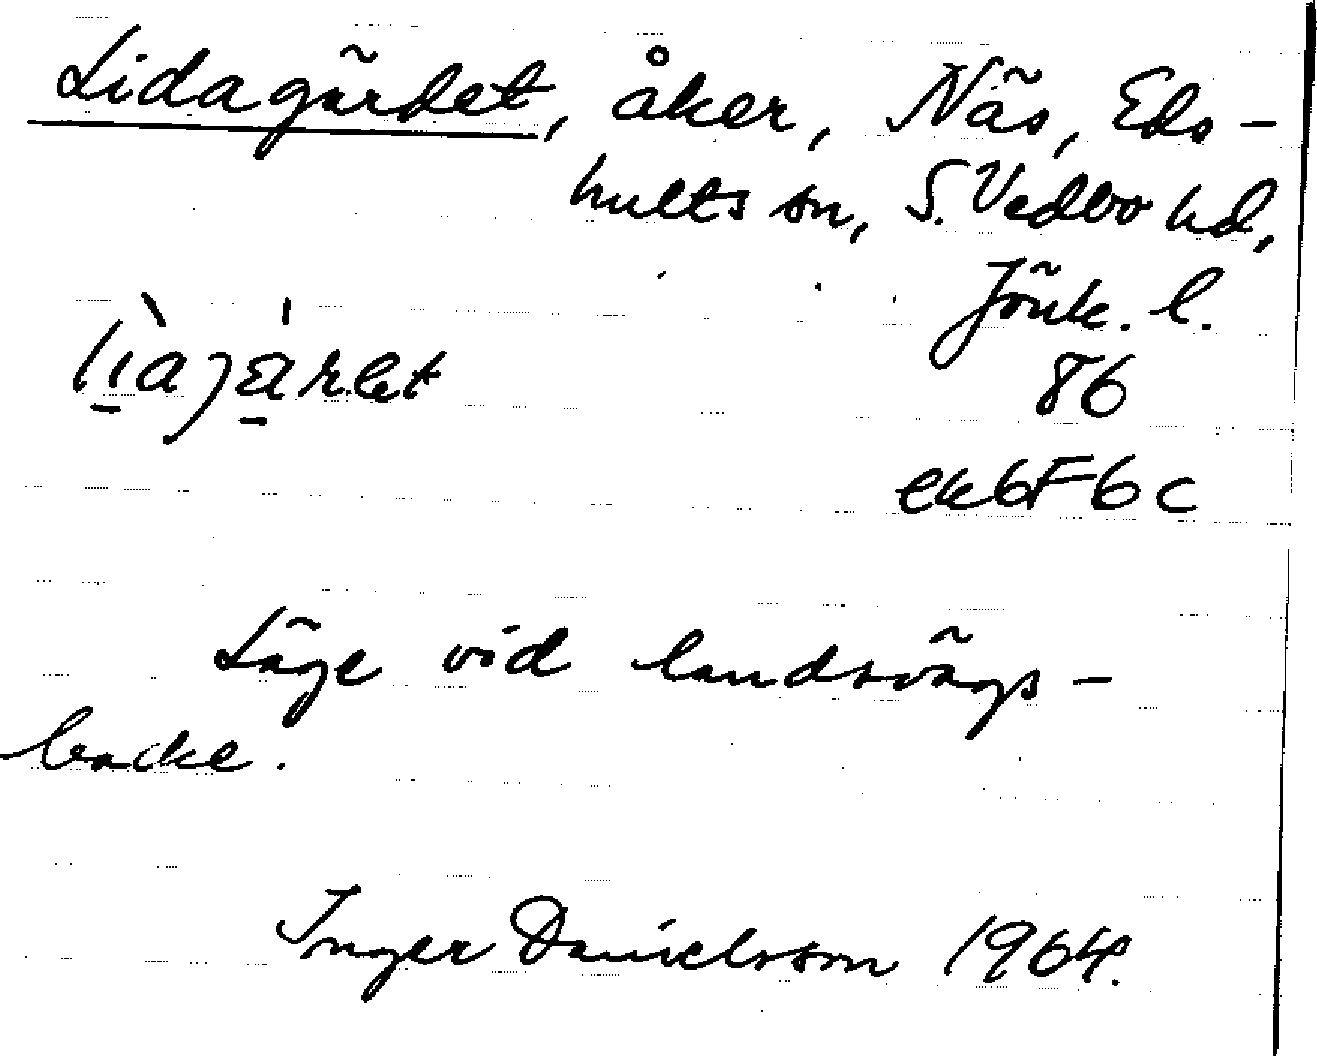 Lidagärdet, åker, Näs, Eds-
hults sn, S. Vedbo hd,
Jönk. l.
86
ekbF6c
Läge vid landsvägs-
backe.
Inger Danielsson 1964.